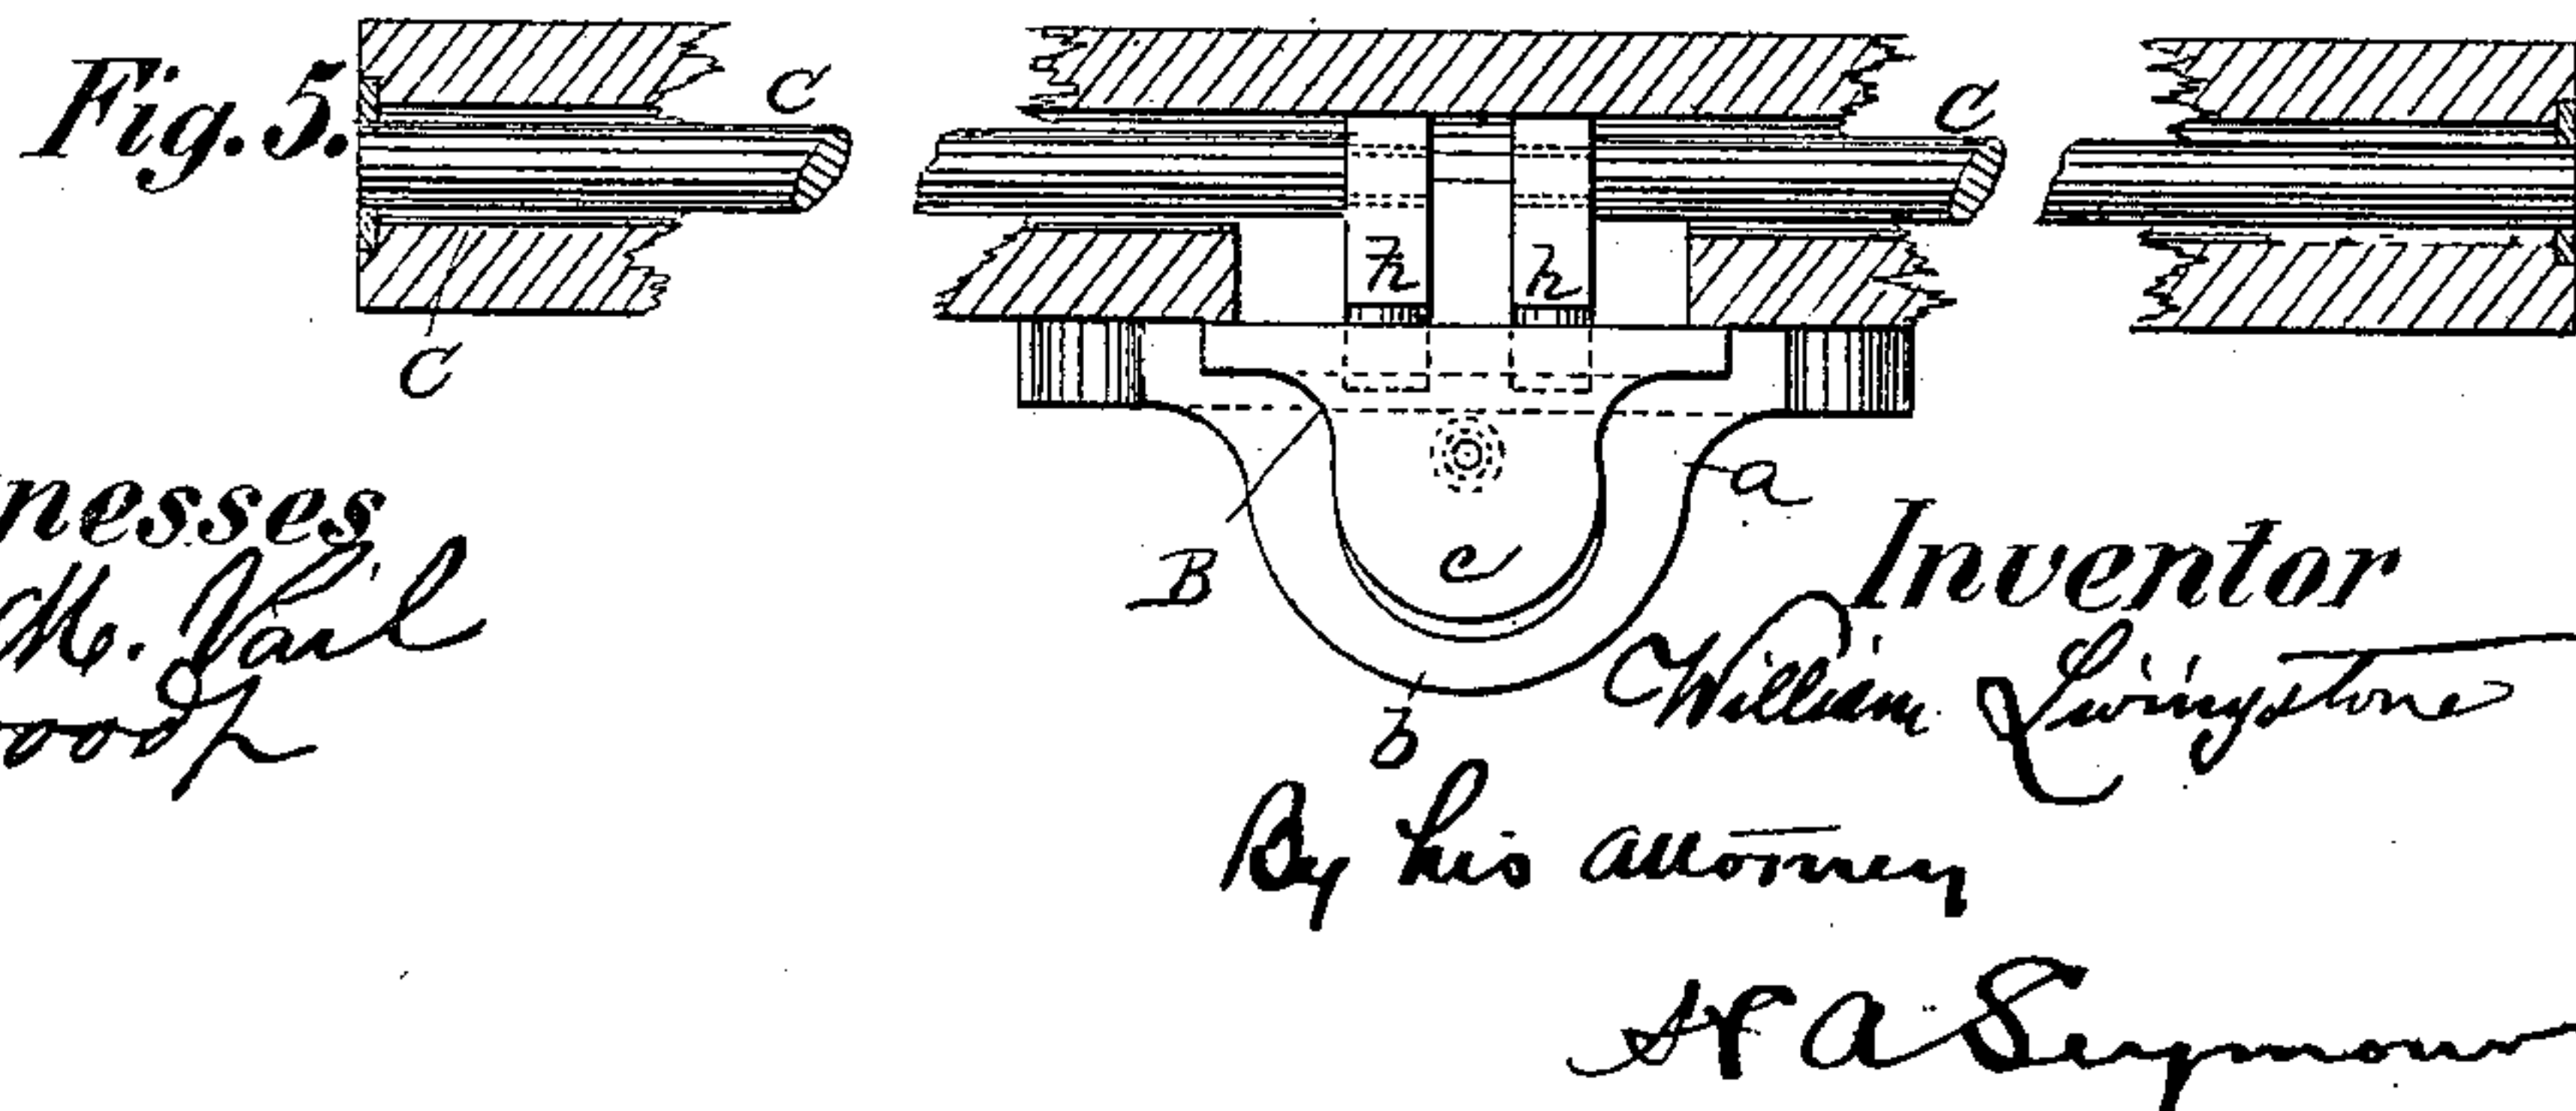 Fig. 5.
C
C
C
h
h
a
B
c
b
nesses
M. Vail
Inventor
William Livingstone
By his attorney
H A Seymour